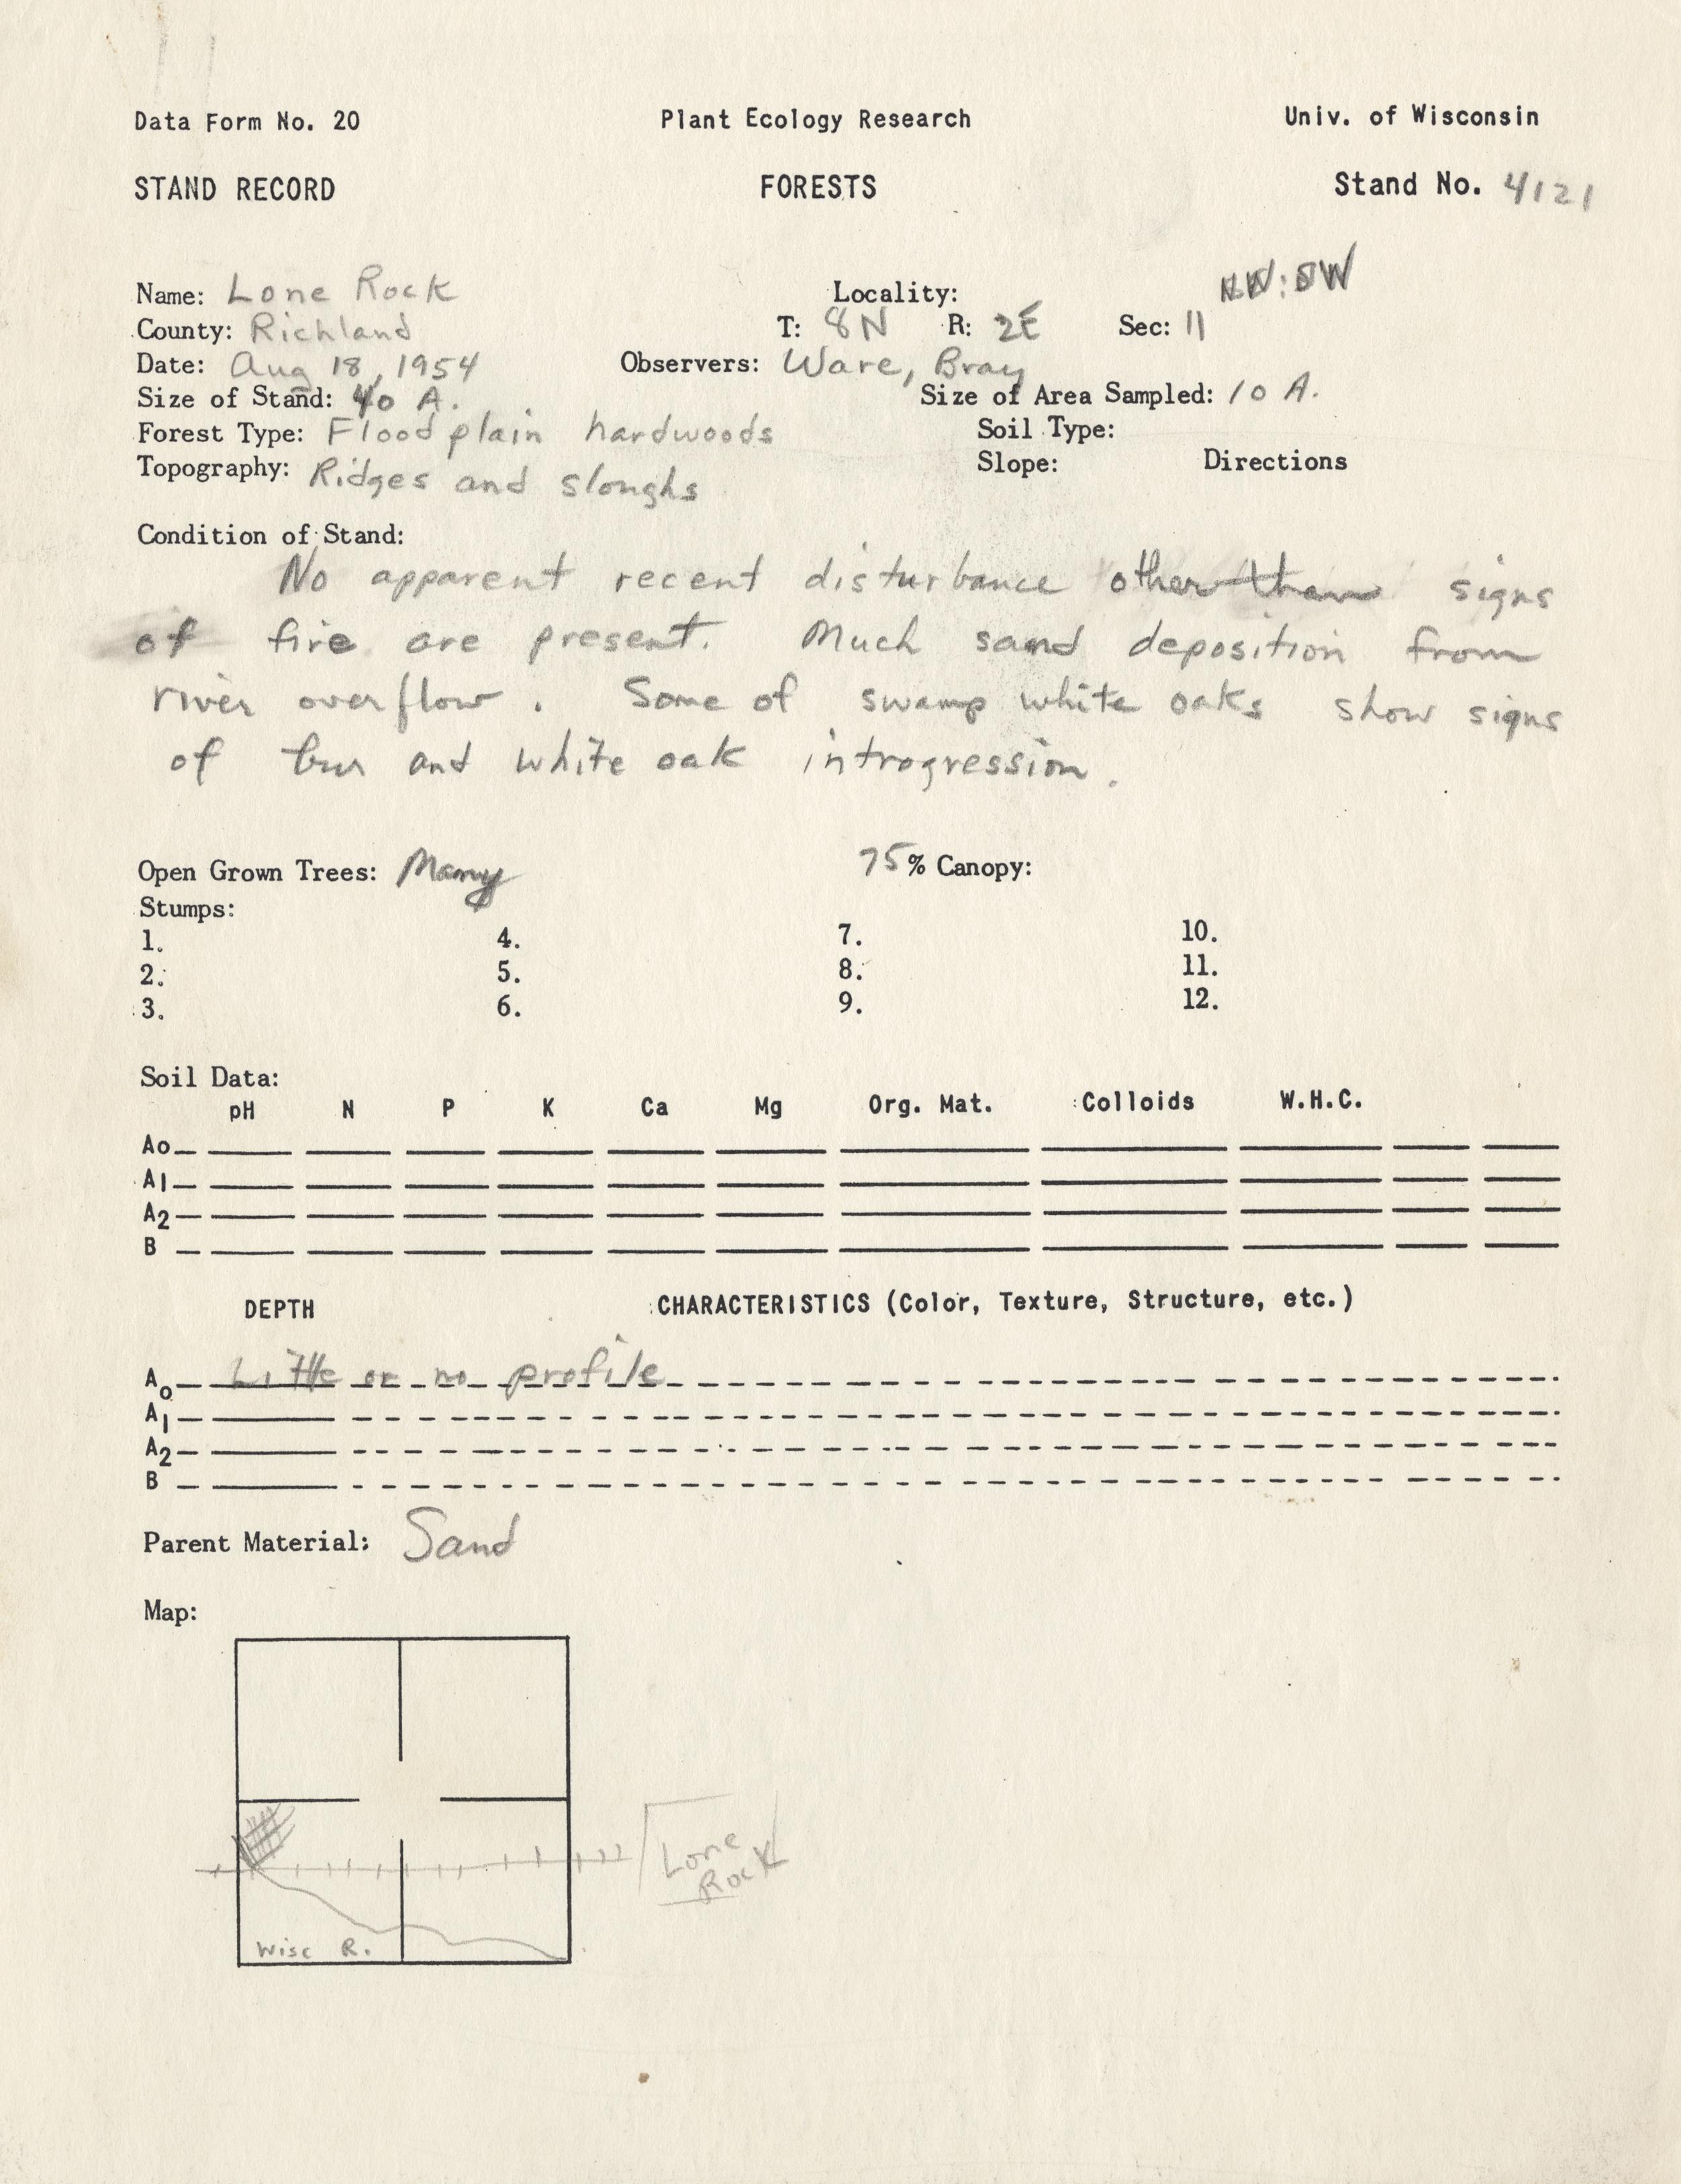 Data Form No. 20 Plant Ecology Research Univ. of Wisconsin
STAND RECORD FORESTS Stand No. 4121
NW:SW
Name: Lone Rock Locality:
County: Richland T: 8N R: 2E Sec: 11
Date: Aug 18, 1954 Observers: Ware, Bray
Size of Stand: 40 A. Size of Area Sampled: 10 A.
Forest Type: Flood plain hardwoods Soil Type:
Topography: Ridges and sloughs Slope: Directions
Condition of Stand:
No apparent recent disturbance other than signs
of fire are present. Much sand deposition from
river overflow. Some of swamp white oaks show signs
of bur and white oak introgression.
Open Grown Trees: Many 75% Canopy:
Stumps:
1. 4. 7. 10.
2. 5. 8. 11.
3. 6. 9. 12.
Soil Data:
pH N P K Ca Mg Org. Mat. Colloids W.H.C.
Ao
A1
A2
B
DEPTH CHARACTERISTICS (Color, Texture, Structure, etc.)
Ao Little or no profile
A1
A2
B
Parent Material: Sand
Map:
Lone
Rock
Wisc R.